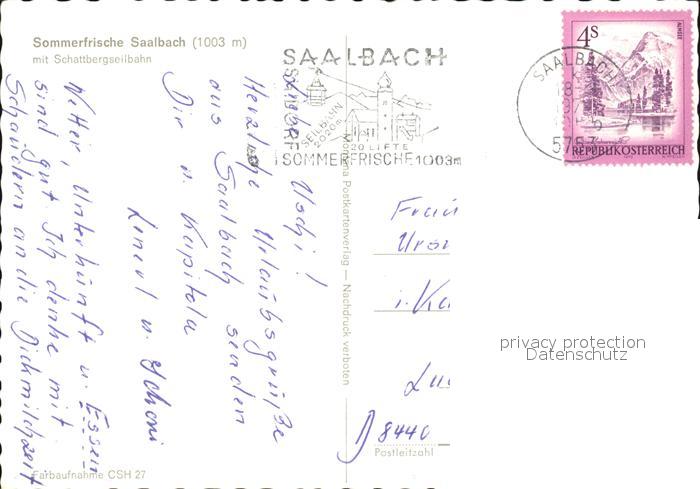 Sommerfrische Saalbach (1003 m)
mit Schattbergseilbahn
SAALBACH
SKIDORF
SEILBAHN
2020m
20 LIFTE
SOMMERFRISCHE 1003m
SAALBACH
5753
4S
ALMSEE
REPUBLIK ÖSTERREICH
Liebe Uschi!
Herzliche Urlaubsgrüße
aus Saalbach senden
Dir u. Kapitola
u.
Wetter, Unterkunft u. Essen
sind gut. Ich denke mit
Schaudern an die Dickmilchzeit
Montana Postkartenverlag — Nachdruck verboten
Frau
Urs
i. Ka
D 8440
Postleitzahl
Farbaufnahme CSH 27
privacy protection
Datenschutz